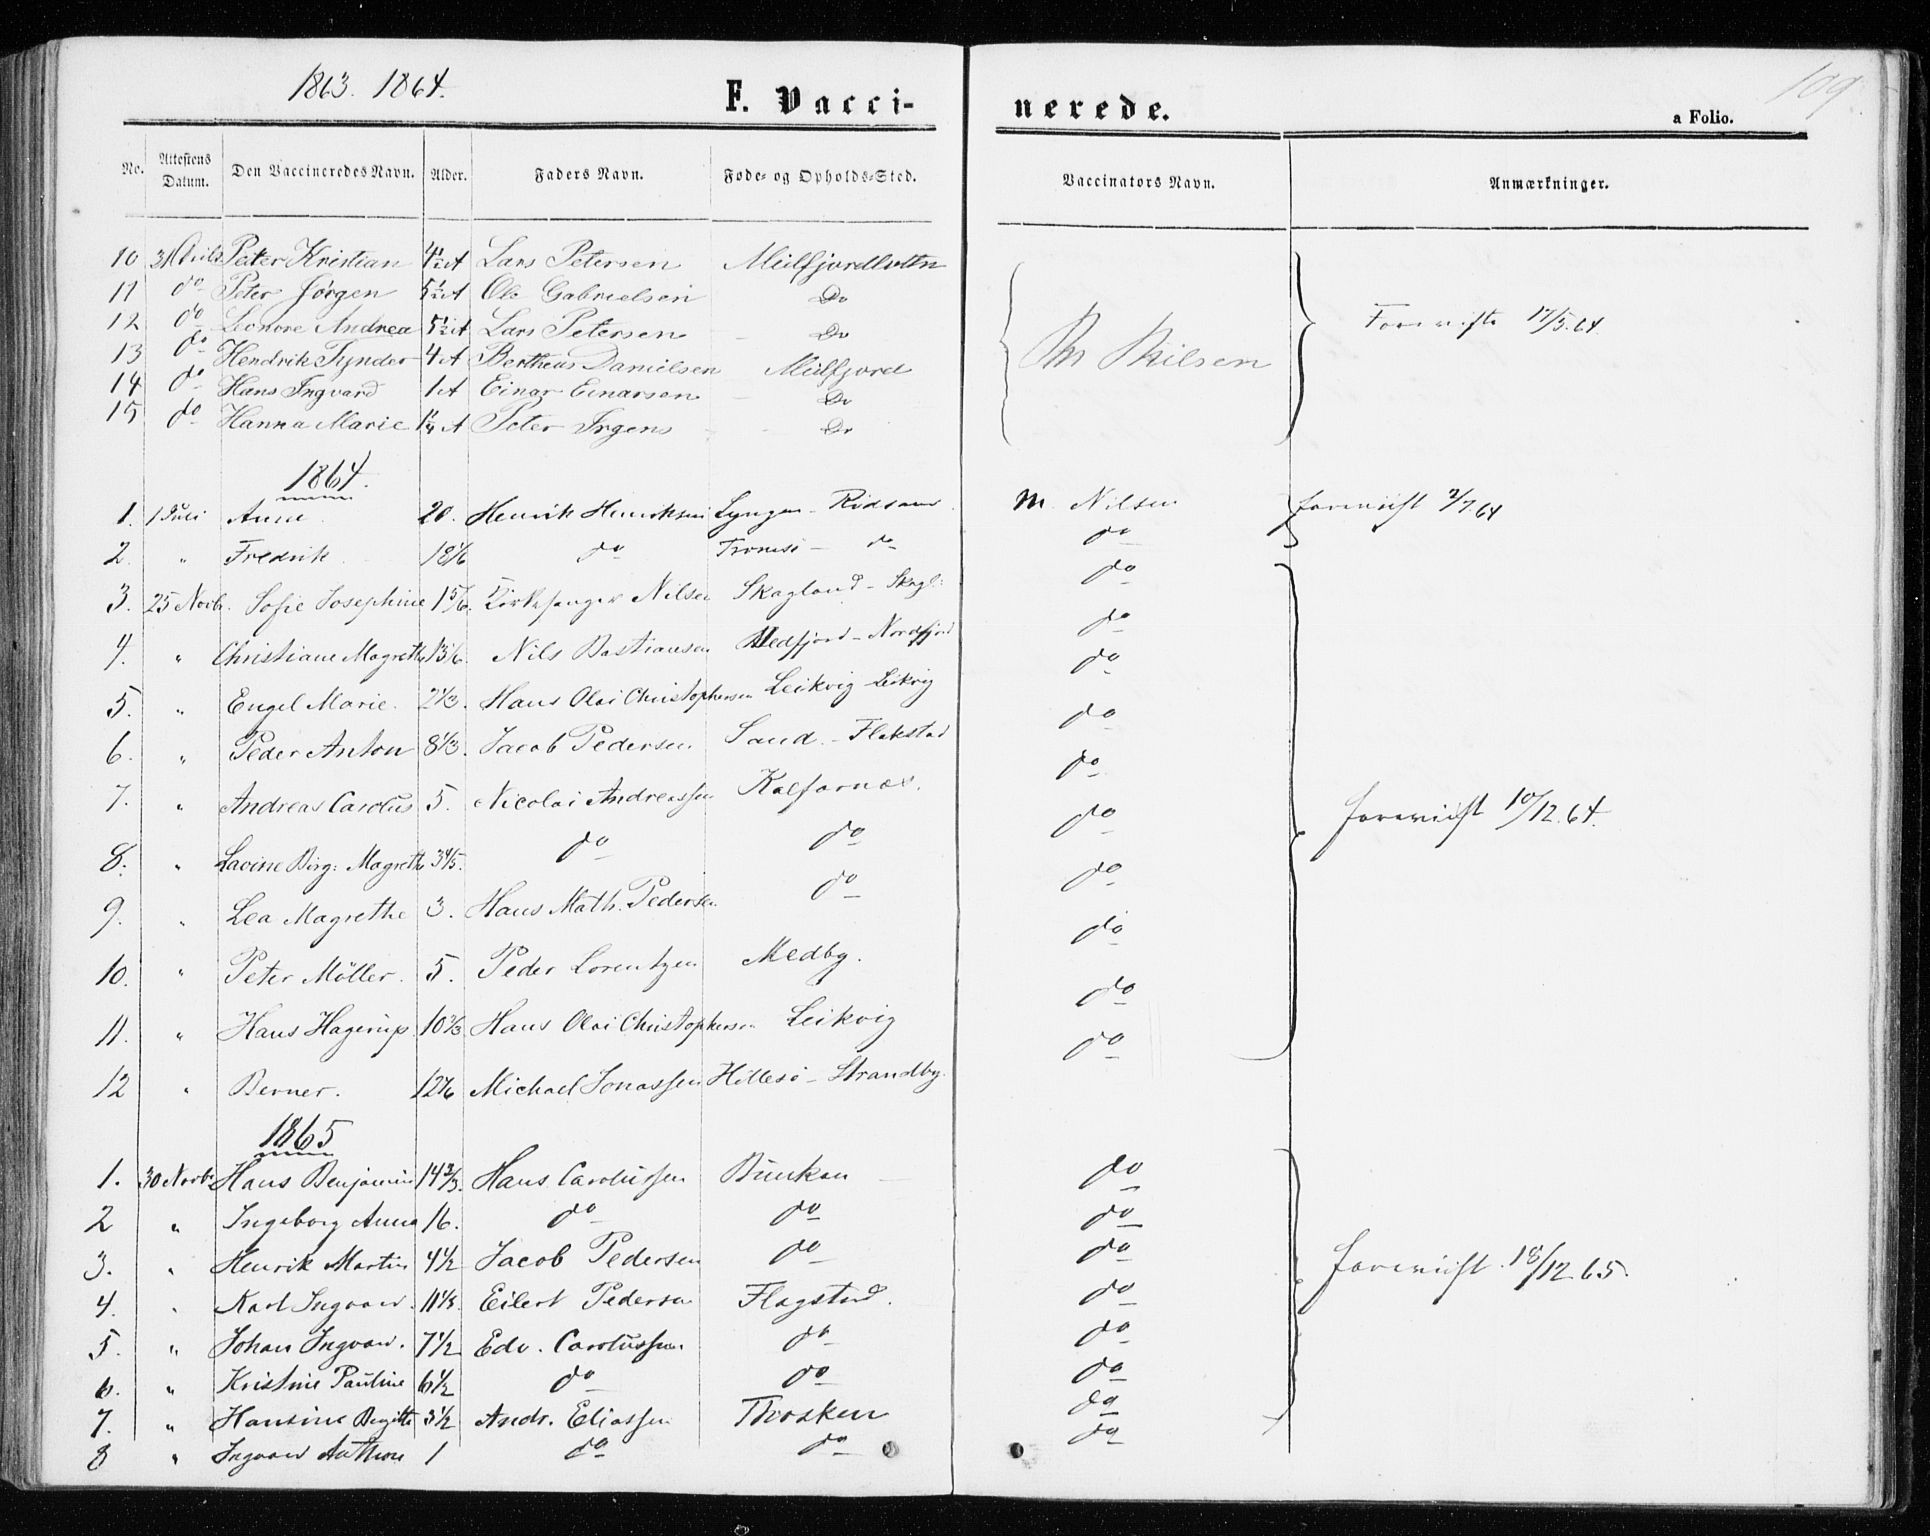 1863. 1864.
F. Vaccinerede.
109
a Folio.
No. | Attestens Datum. | Den Vaccineredes Navn. | Alder. | Faders Navn. | Føde- og Opholds-Sted. | Vaccinators Navn. | Anmærkninger.
10 | 31 | Peter Kristian | 4½ A | Lars Petersen | 
11 | do | Peter Jörgen | 5½ A | Ole Gabrielsen | Do
12 | do | Leonore Andrea | 5½ A | Lars Petersen | Do | 17/5.64
13 | do | Hendrik Tynder | 4 A | Bertheus Danielsen | Meilfjord
14 | do | Hans Ingvard | 1 A | Einar Einarsen | Do
15 | do | Hanna Marie | 1¼ A | Peter Irgens | Do
1864.
1. | 1 Juli | Anne | 20. | Henrik Henriksen | Lyngen - Rödsand | M. Nilsen | forevist 2/7 64
2. | " | Fredrik | 18 1/6 | do | Tromsö - do | do
3. | 25 Novb. | Sofie Josephine | 1 5/6. | Kirkesanger Nilsen | Skagland - Skagl: | do
4. | " | Christiane Magrethe | Nils Bastiansen | Medfjord - Nordfjord | do
5. | " | Engel Marie. | 2 1/3. | Hans Olai Christophersen | Leikvig - Leikvig | do
6. | " | Peder Anton | 8 1/3. | Jacob Pedersen | Sand. - Flakstad | do
7. | " | Andreas Carolus | 5. | Nicolai Andreassen | Kalfarnæs. | do | forevist 10/12.64.
8. | " | Lavine Birg: Magrethe | 3 4/5. | do | do | do
9. | " | Lea Magrethe | 3. | Hans Math. Pedersen | do | do
10. | " | Peter Möller. | 5. | Peder Lorentzen | Medby. | do
11. | " | Hans Hagerup | 10 2/3 | Hans Olai Christophersen | Leikvig | do
12 | " | Berner. | Michael Jonassen | Hillesö - Strandby. | do
1865
1. | 30 Novbr | Hans Benjamin | 14 2/3. | Hans Carolussen | Bunkan | do
2 | " | Ingeborg Anna | 16. | do | do | do
3. | " | Henrik Martin | 4 1/2 | Jacob Pedersen | do | do | forevist 18/12 65.
4. | " | Karl Ingvard. | 11 1/3. | Eilert Pedersen | Flagstad. | do
5. | " | Johan Ingvard. | 7 1/2 | Edv. Carolussen | do | do
6. | " | Kristine Pauline | 6 1/2 | do | do | do
7. | " | Hansine Birgitte | 3 1/2 | Andr. Eliassen | Thorsken | do
8 | " | Ingvard Anthon | 1 | do | do | do